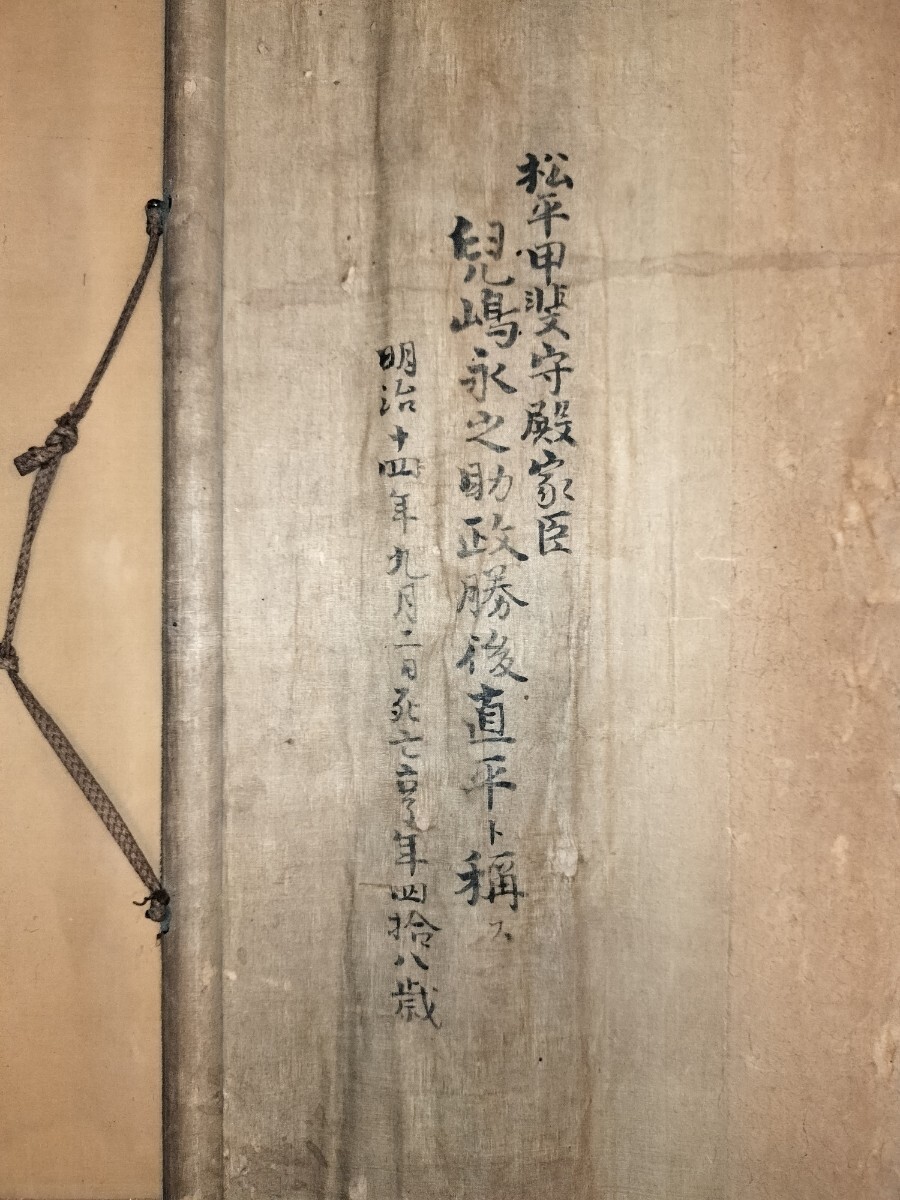 松平甲斐守殿家臣
兒嶋永之助政勝後直平ト稱ス
明治十四年九月二日死亡享年四拾八歳